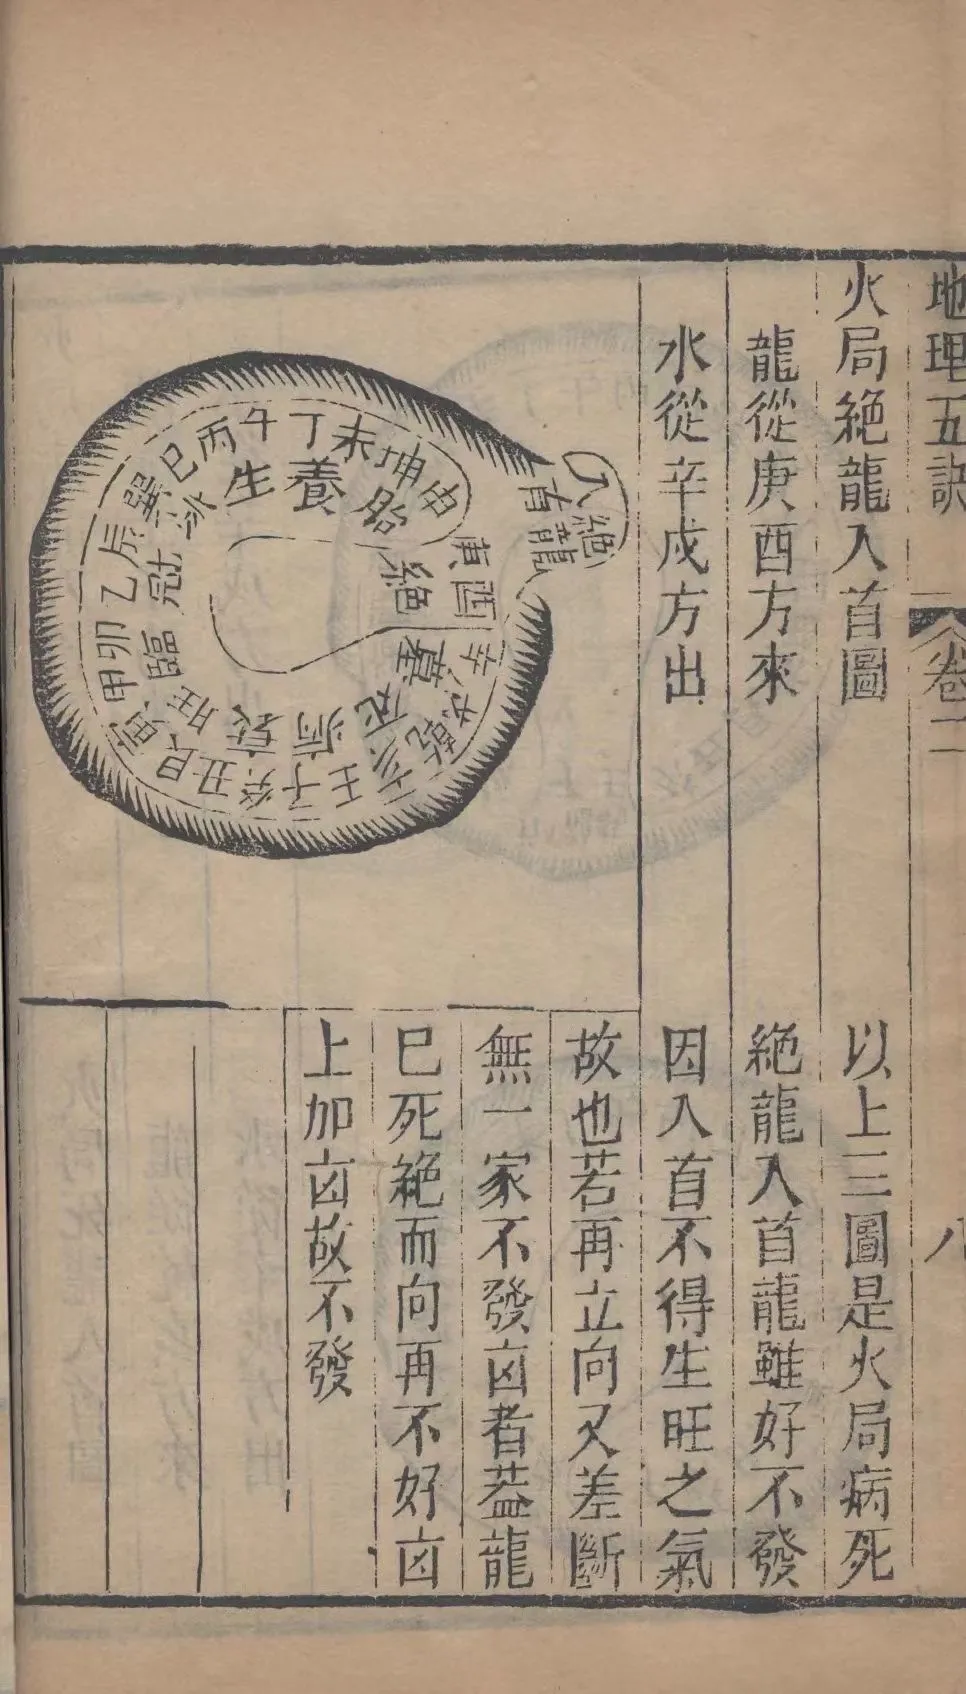 地理五訣
卷二
八
火局絕龍入首圖
龍從庚酉方來
水從辛戌方出
絕龍
入首
丙午丁未坤申庚酉辛戌乾亥壬子癸丑艮寅甲卯乙辰巽巳
生養胎絕墓死病衰旺臨冠沐
以上三圖是火局病死
絕龍入首龍雖好不發
因入首不得生旺之氣
故也若再立向又差斷
無一家不發凶者葢龍
巳死絕而向再不好凶
上加凶故不發